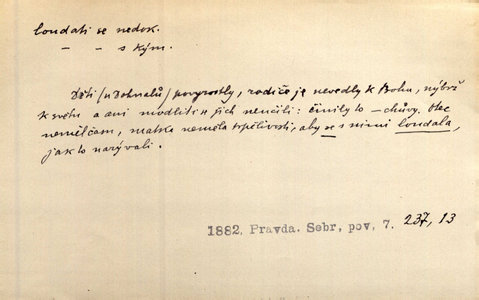 loudati se nedok.
— — s kým.
Děti (u Dohnalů) povyrostly, rodiče je nevedly k Bohu, nýbrž
k světu a ani modliti se jich neučili: činily to — chůvy. Otec
neměl čas, matka neměla trpělivosti, aby se s nimi loudala,
jak to nazývali.
1882, Pravda. Sebr, pov, 7. 237, 13